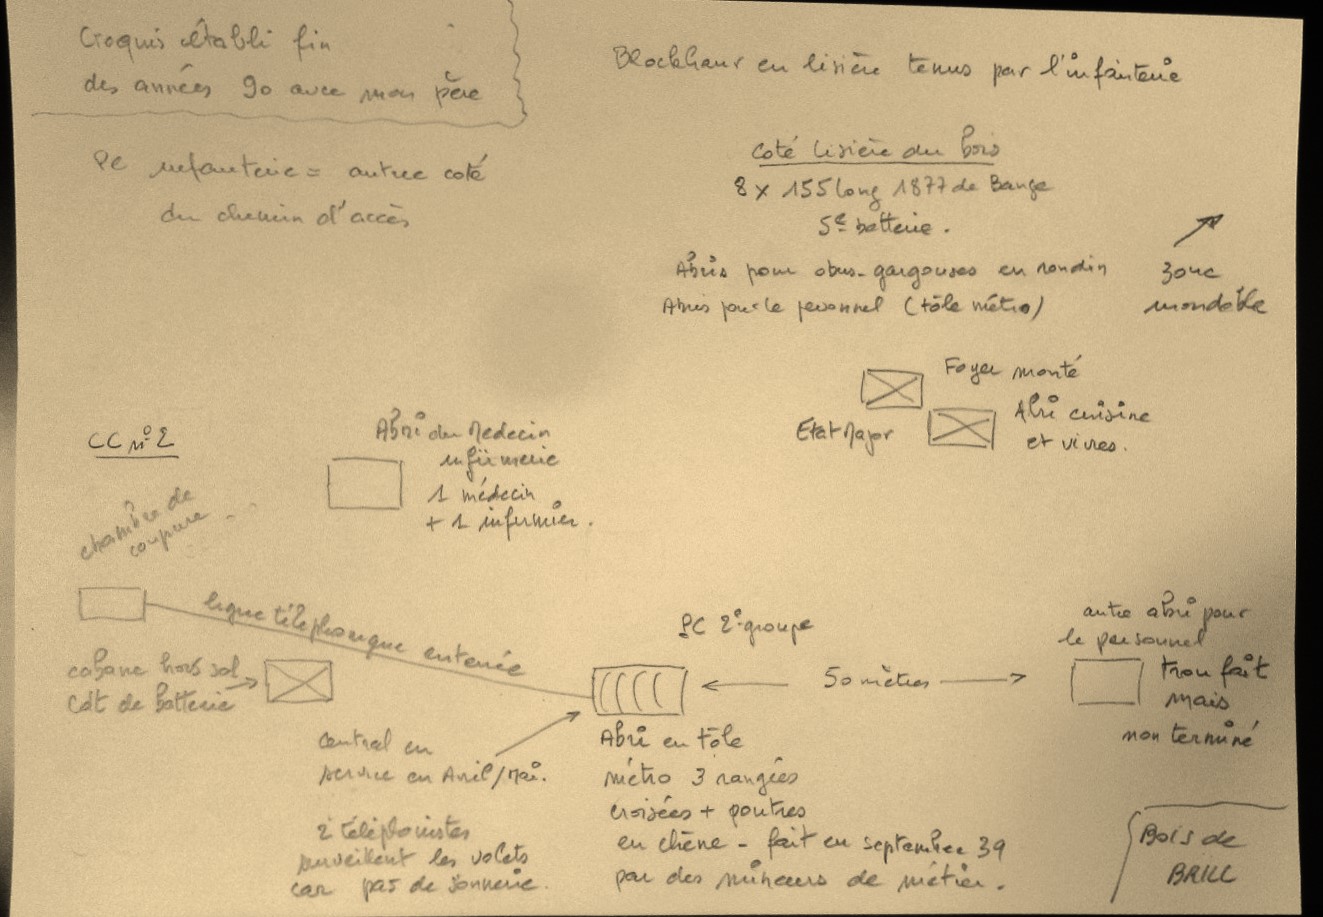 Croquis établi fin
des années 90 avec mon père
Blockhaus en lisière tenus par l'infanterie
PC infanterie = autre coté
du chemin d'accès
Coté lisière du bois
8 x 155 long 1877 de Bange
5e batterie.
Abris pour obus-gargousses en rondin
Abris pour le personnel (tôle métro)
zone
inondable
Foyer monté
Etat Major
Abri cuisine
et vivres.
CC N°2
Abri du Medecin
infirmerie
1 médecin
+ 1 infirmier.
chambre de
coupure
ligne téléphonique enterrée
cabane hors sol
Cdt de Batterie
PC 2e groupe
50 mètres
autre abri pour
le personnel
trou fait
mais
non terminé
central en
service en Avril/Mai.
2 téléphonistes
surveillent les volets
car pas de sonnerie.
Abri en tôle
métro 3 rangées
croisées + poutres
en chêne - fait en septembre 39
par des mineurs de métier.
Bois de
BRILL